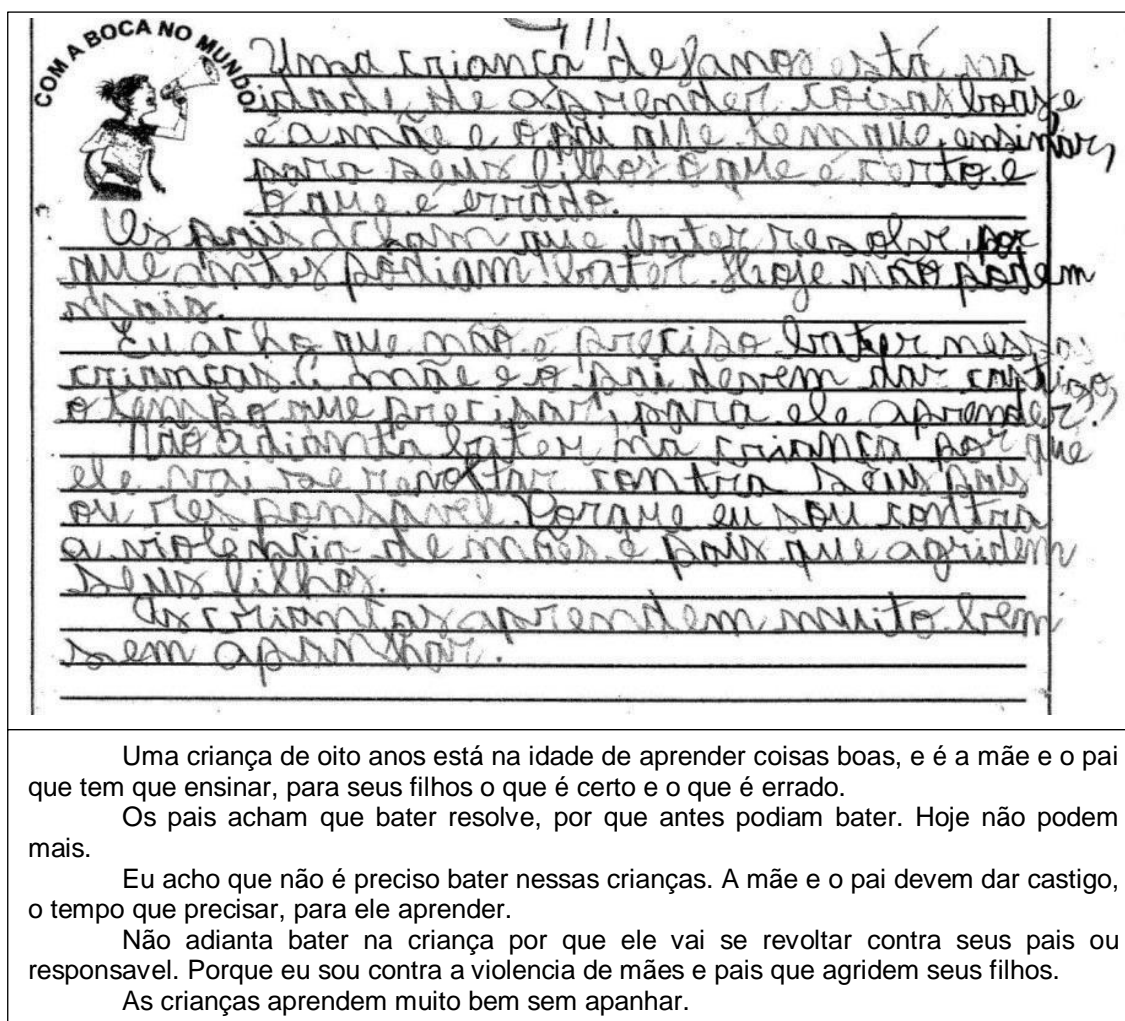 COM A BOCA NO MUNDO
Uma criança de 8 anos está na
idade de aprender coisas boas, e
é a mãe e o pai que tem que ensinar,
para seus filhos o que é certo e
o que é errado.
Os pais acham que bater resolve, por
que antes podiam bater. Hoje não podem
mais.
Eu acho que não é preciso bater nessas
crianças. A mãe e o pai devem dar castigo,
o tempo que precisar, para ele aprender.
Não adianta bater na criança por que
ele vai se revoltar contra seus pais
ou responsavel. Porque eu sou contra
a violencia de mães e pais que agridem
seus filhos.
As crianças aprendem muito bem
sem apanhar.
Uma criança de oito anos está na idade de aprender coisas boas, e é a mãe e o pai
que tem que ensinar, para seus filhos o que é certo e o que é errado.
Os pais acham que bater resolve, por que antes podiam bater. Hoje não podem
mais.
Eu acho que não é preciso bater nessas crianças. A mãe e o pai devem dar castigo,
o tempo que precisar, para ele aprender.
Não adianta bater na criança por que ele vai se revoltar contra seus pais ou
responsavel. Porque eu sou contra a violencia de mães e pais que agridem seus filhos.
As crianças aprendem muito bem sem apanhar.